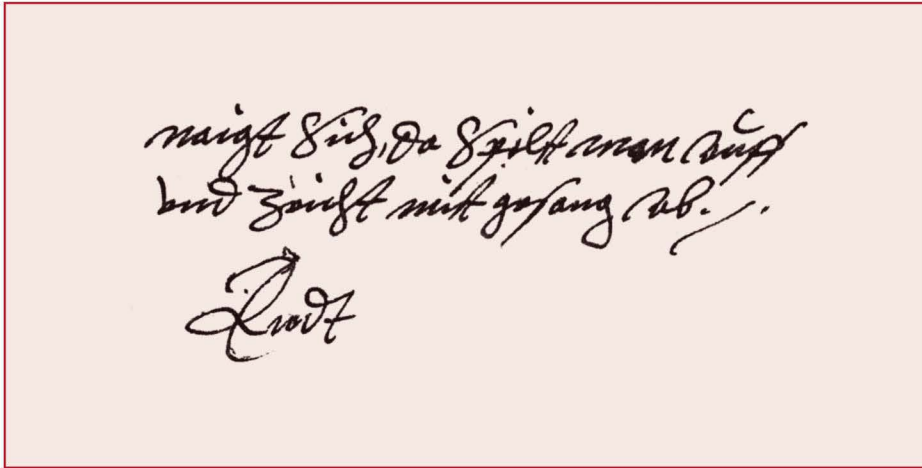 naigt Sich, da Spilt man auff
vnd Zeicht mit gesang ab ./.
Endt